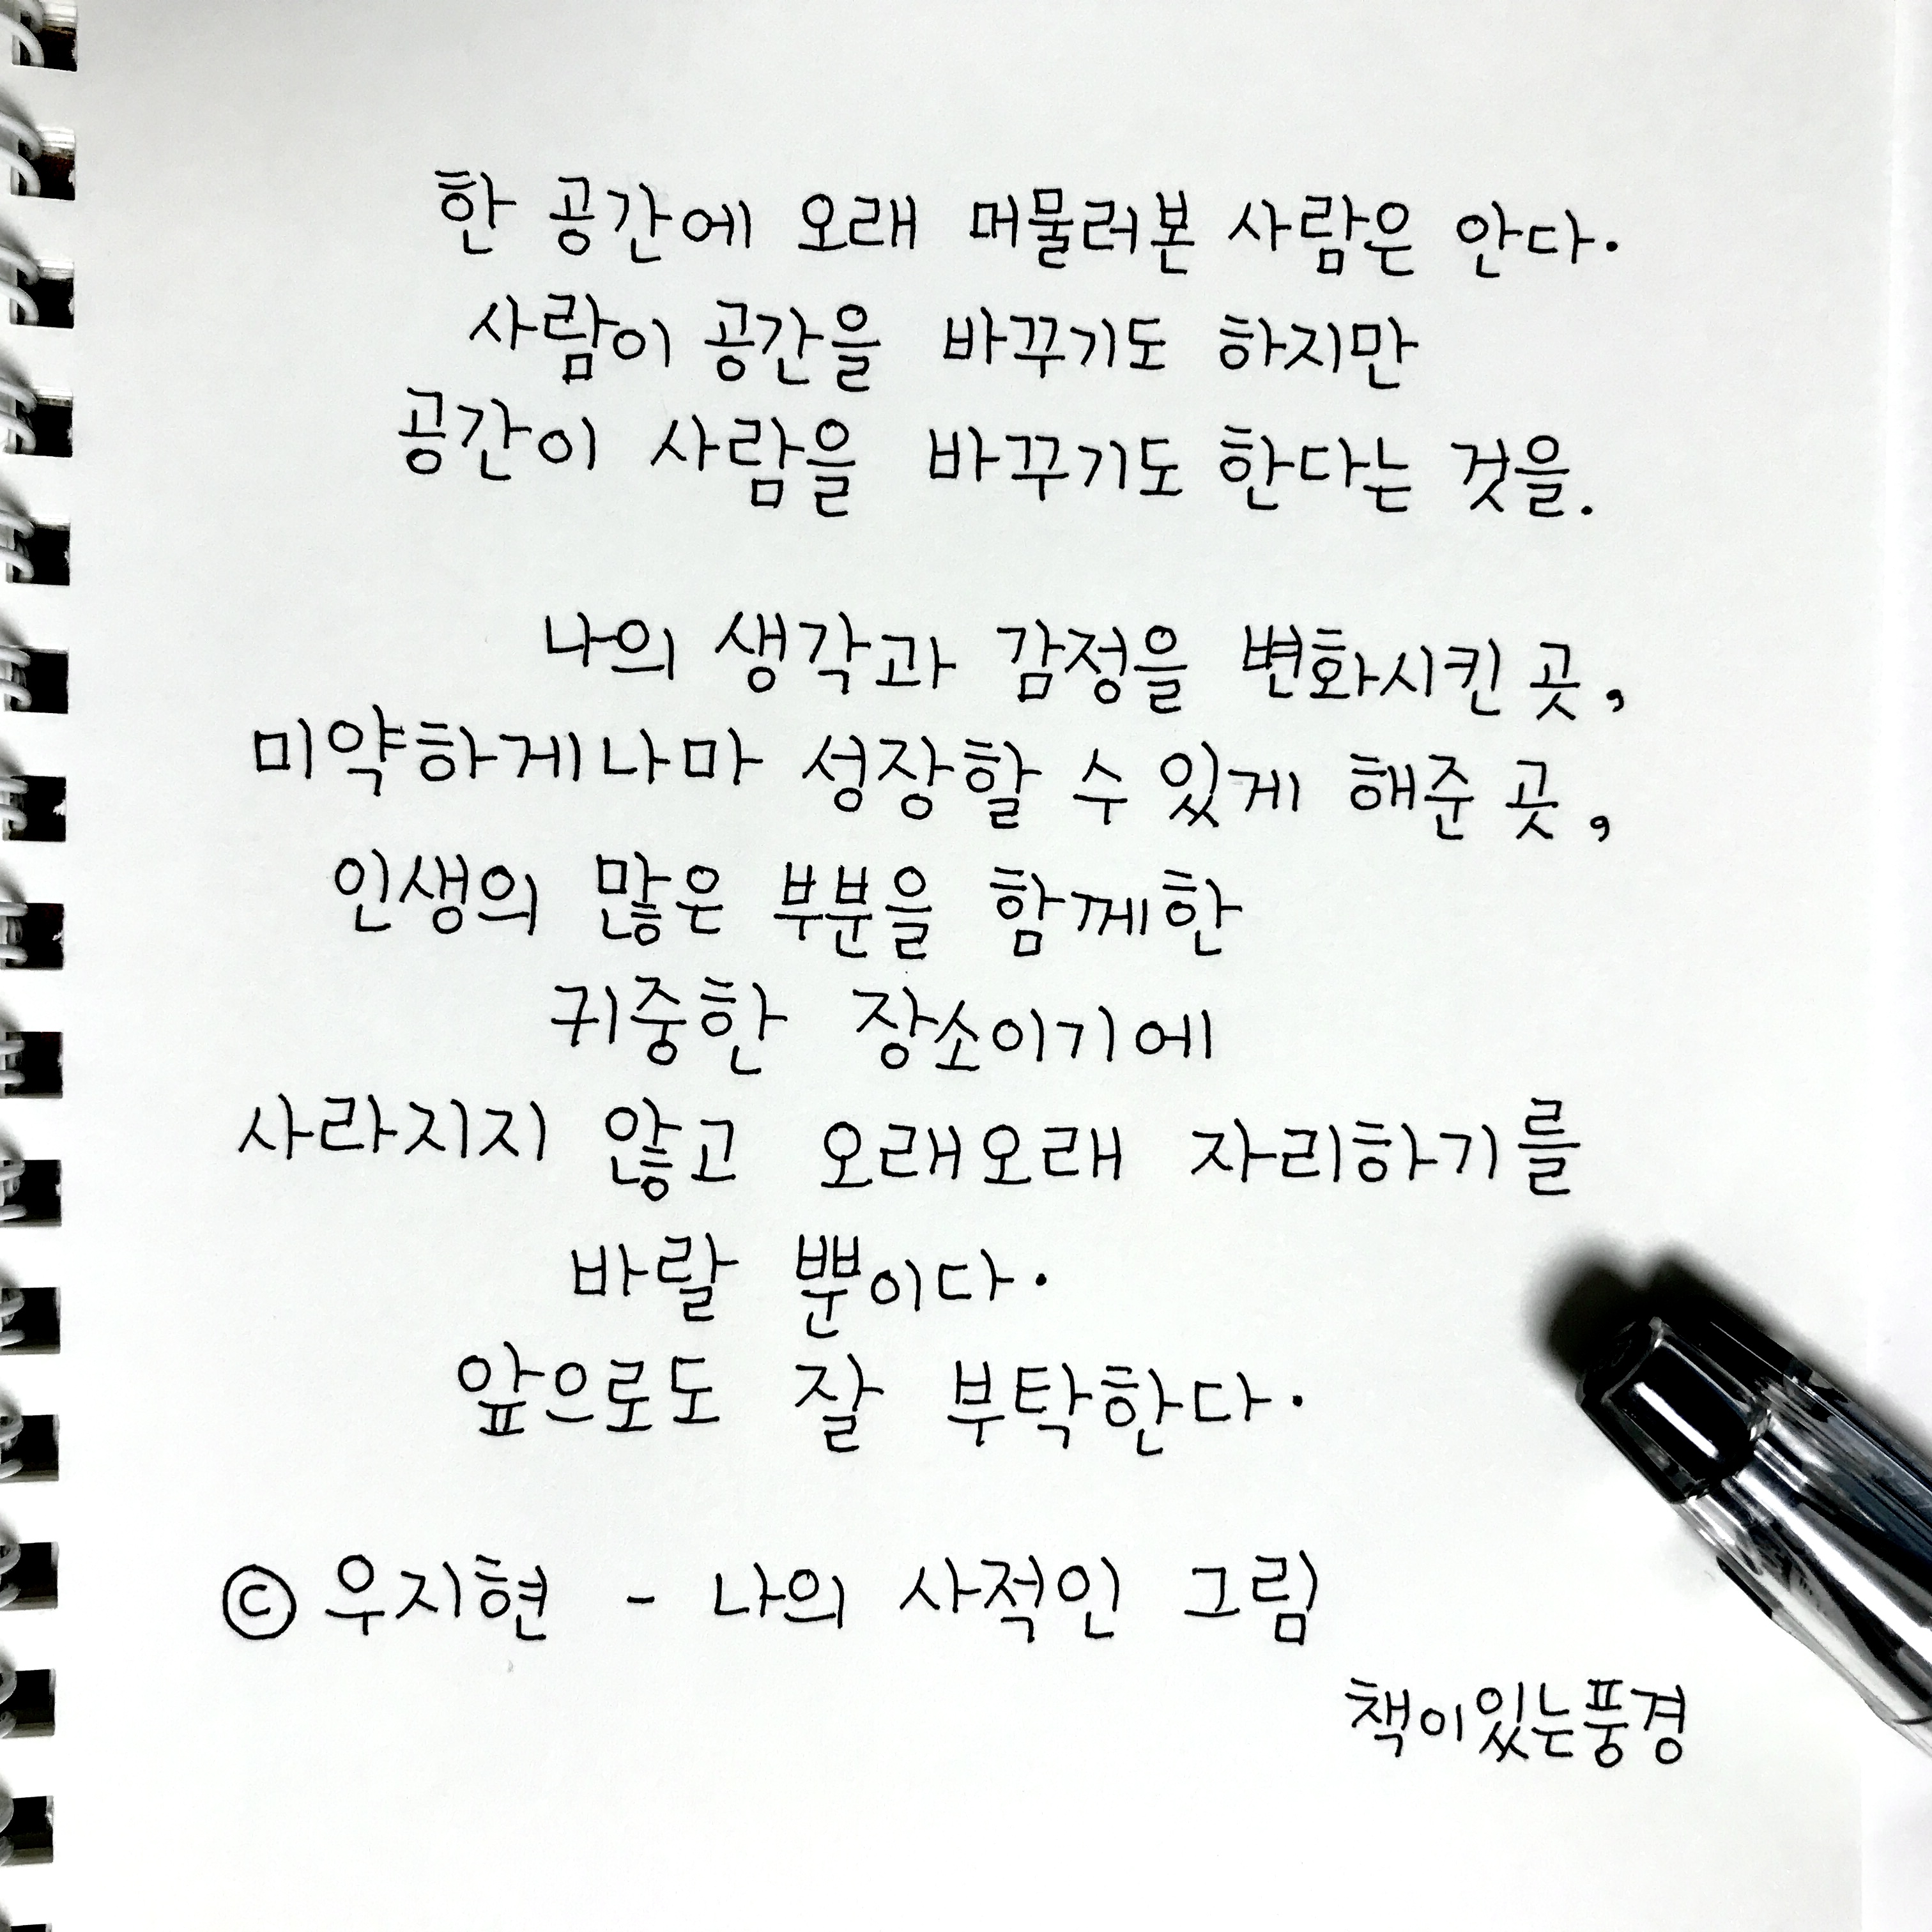 한 공간에 오래 머물러본 사람은 안다.
사람이 공간을 바꾸기도 하지만
공간이 사람을 바꾸기도 한다는 것을.
나의 생각과 감정을 변화시킨 곳,
미약하게나마 성장할 수 있게 해준 곳,
인생의 많은 부분을 함께한
귀중한 장소이기에
사라지지 않고 오래오래 자리하기를
바랄 뿐이다.
앞으로도 잘 부탁한다.
© 우지현 - 나의 사적인 그림
책이있는풍경